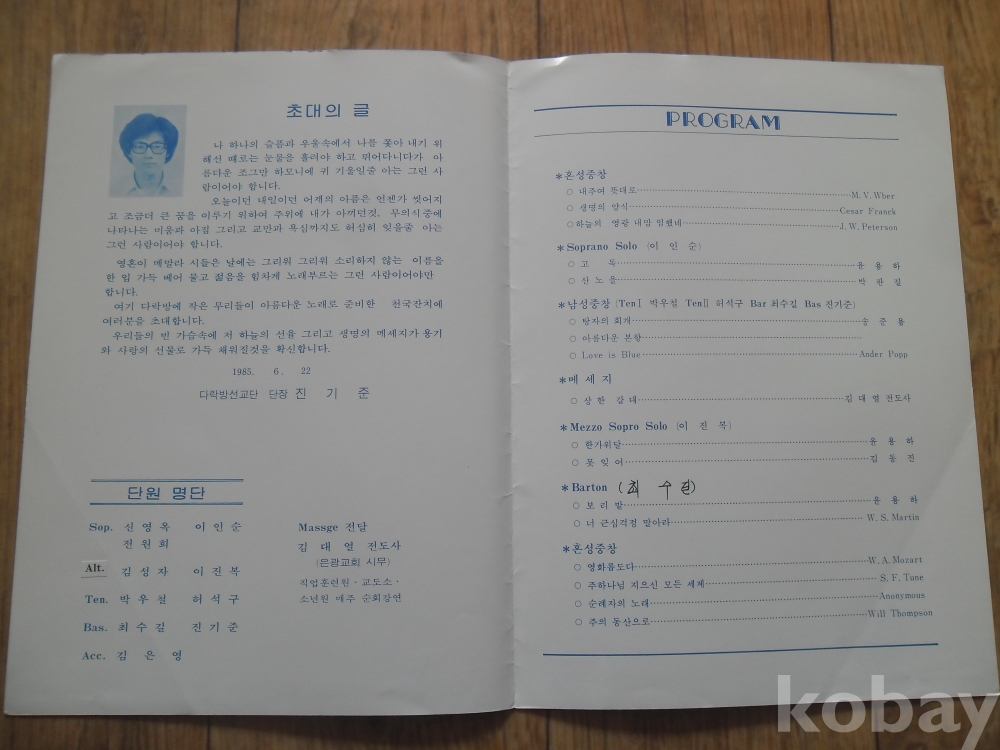 초대의 글
나 하나의 슬픔과 우울속에서 나를 쫓아 내기 위
해선 때로는 눈물을 흘려야 하고 뛰어다니다가 아
름다운 조그만 하모니에 귀 기울일줄 아는 그런 사
람이어야 합니다.
오늘이던 내일이던 어제의 아픔은 언젠가 씻어지
고 조금더 큰 꿈을 이루기 위하여 주위에 내가 아끼던것, 무의식중에
나타나는 미움과 아집 그리고 교만과 욕심까지도 허심히 잊을줄 아는
그런 사람이어야 합니다.
영혼이 메말라 시들은 날에는 그리워 그리워 소리하지 않는 이름을
한 입 가득 베어 물고 젊음을 힘차게 노래부르는 그런 사람이어야만
합니다.
여기 다락방에 작은 무리들이 아름다운 노래로 준비한 천국잔치에
여러분을 초대합니다.
우리들의 빈 가슴속에 저 하늘의 선율 그리고 생명의 메세지가 용기
와 사랑의 선물로 가득 채워질것을 확신합니다.
1985. 6. 22
다락방선교단 단장 진 기 준
단원 명단
Sop. 신 영 옥 이 인 순
전 원 희
Alt. 김 성 자 이 진 복
Ten. 박 우 철 허 석 구
Bas. 최 수 길 진 기 준
Acc. 김 은 영
Massge 전달
김 대 열 전도사
(은광교회 시무)
직업훈련원 · 교도소 ·
소년원 매주 순회강연
PROGRAM
*혼성중창
○ 내주여 뜻대로 M. V. Wber
○ 생명의 양식 Cesar Franck
○ 하늘의 영광 내맘 입했네 J. W. Peterson
*Soprano Solo (이 인 순)
○ 고 독 윤 용 하
○ 산 노 을 박 판 길
*남성중창 (TenⅠ 박우철 TenⅡ 허석구 Bar 최수길 Bas 진기준)
○ 탕자의 회개 송 준 용
○ 아름다운 본향
○ Love is Blue Ander Popp
*메 세 지
○ 상 한 갈 대 김 대 열 전도사
*Mezzo Sopro Solo (이 진 복)
○ 한가위달 윤 용 하
○ 못 잊 어 김 동 진
*Barton (최 수 길)
○ 보 리 밭 윤 용 하
○ 너 근심걱정 말아라 W. S. Martin
*혼성중창
○ 영화롭도다 W. A. Mozart
○ 주하나님 지으신 모든 세계 S. F. Tune
○ 순례자의 노래 Anonymous
○ 주의 동산으로 Will Thompson
kobay